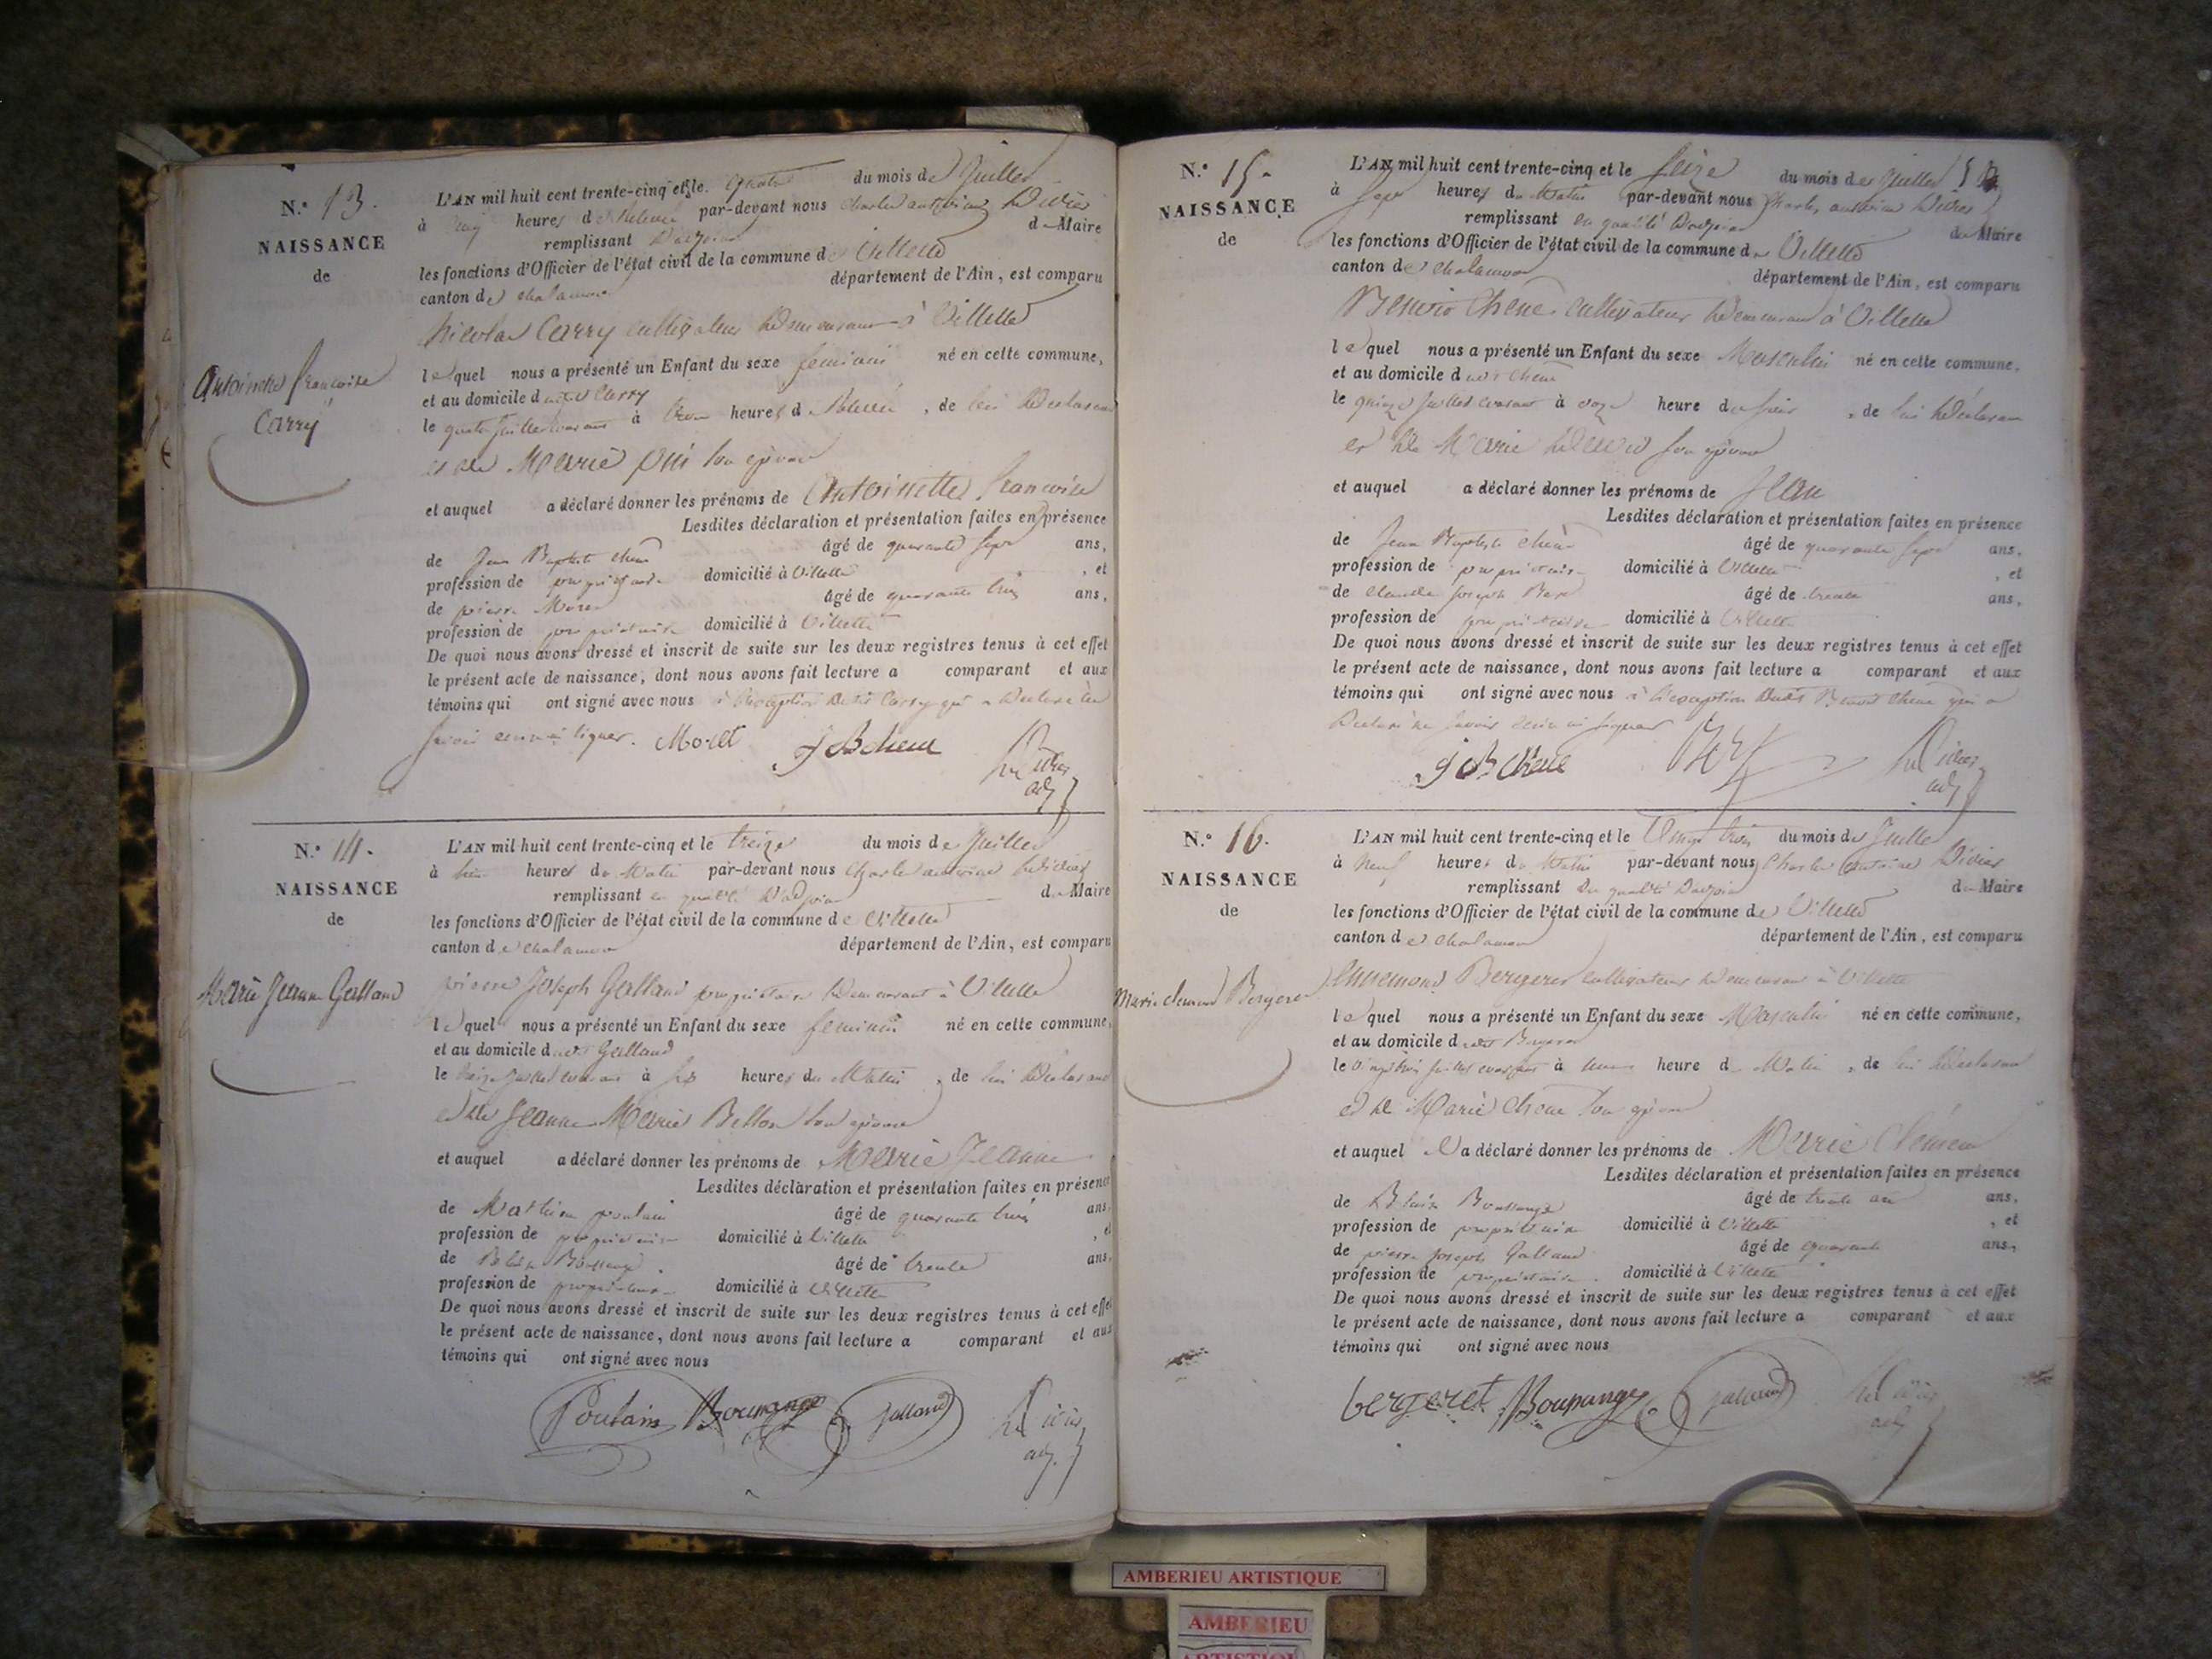 N.° 13.
NAISSANCE
de
Antoinette françoise
Carry
L'AN mil huit cent trente-cinq et le quatre du mois de Juillet
à cinq heures d par-devant nous Charles antoine Didier
remplissant d Maire
les fonctions d'Officier de l'état civil de la commune de Villette
canton de chalamon département de l'Ain, est comparu
Nicolas Carry cultivateur demeurant à Villette
lequel nous a présenté un Enfant du sexe feminin né en cette commune,
et au domicile dudit Carry
le quatre juillet courant à trois heures d , de lui Déclarant
et de Marie son épouse
et auquel a déclaré donner les prénoms de Antoinette francoise
Lesdites déclaration et présentation faites en présence
de Jean Baptiste chêne âgé de quarante sept ans,
profession de propriétaire domicilié à Villette , et
de pierre Moret âgé de quarante trois ans,
profession de propriétaire domicilié à Villette
De quoi nous avons dressé et inscrit de suite sur les deux registres tenus à cet effet
le présent acte de naissance, dont nous avons fait lecture a comparant et aux
témoins qui ont signé avec nous à l'exception dudit Carry qui a Déclaré ne
savoir signer. Moret J B chene Didier
adj
N.° 14.
NAISSANCE
de
Marie Jeanne Galland
L'AN mil huit cent trente-cinq et le treize du mois de Juillet
à huit heures du Matin par-devant nous Charles antoine Didier
remplissant en qualité D'adjoint du Maire
les fonctions d'Officier de l'état civil de la commune de Villette
canton de chalamon département de l'Ain, est comparu
pierre Joseph Galland propriétaire Demeurant à Villette
lequel nous a présenté un Enfant du sexe feminin né en cette commune,
et au domicile dudit Galland
le treize juillet courant à six heures du Matin , de lui Déclarant
et de Jeanne Marie Bellon son épouse
et auquel a déclaré donner les prénoms de Marie Jeanne
Lesdites déclaration et présentation faites en présence
de Mathieu poulain âgé de quarante trois ans,
profession de propriétaire domicilié à Villette , et
de âgé de trente ans,
profession de propriétaire domicilié à Villette
De quoi nous avons dressé et inscrit de suite sur les deux registres tenus à cet effet
le présent acte de naissance, dont nous avons fait lecture a comparant et aux
témoins qui ont signé avec nous
Poulain galland Didier
adj.
N.° 15.
NAISSANCE
de
L'AN mil huit cent trente-cinq et le seize du mois de Juillet
à sept heures du Matin par-devant nous Charles antoine Didier
remplissant en qualité D'adjoint du Maire
les fonctions d'Officier de l'état civil de la commune de Villette
canton de chalamon département de l'Ain, est comparu
Benoit Chene cultivateur Demeurant à Villette
lequel nous a présenté un Enfant du sexe Masculin né en cette commune,
et au domicile dudit Chene
le quinze Juillet courant à onze heure du soir , de lui Déclarant
et de Marie son épouse
et auquel a déclaré donner les prénoms de Jean
Lesdites déclaration et présentation faites en présence
de Jean Baptiste chêne âgé de quarante sept ans,
profession de propriétaire domicilié à Villette , et
de Claude Joseph âgé de trente ans,
profession de propriétaire domicilié à Villette
De quoi nous avons dressé et inscrit de suite sur les deux registres tenus à cet effet
le présent acte de naissance, dont nous avons fait lecture a comparant et aux
témoins qui ont signé avec nous à l'exception dudit Benoit Chene qui a
Déclaré ne savoir
J B Chene Didier
adj
N.° 16.
NAISSANCE
de
Marie clement Bergeret
L'AN mil huit cent trente-cinq et le Vingt trois du mois de Juillet
à Neuf heures du Matin par-devant nous Charles Antoine Didier
remplissant en qualité D'adjoint du Maire
les fonctions d'Officier de l'état civil de la commune de Villette
canton de chalamon département de l'Ain, est comparu
Ennemond Bergeret cultivateur Demeurant à Villette
lequel nous a présenté un Enfant du sexe Masculin né en cette commune,
et au domicile dudit Bergeret
le vingt trois juillet courant à une heure du Matin , de lui Déclarant
et de Marie Chene son épouse
et auquel il a déclaré donner les prénoms de Marie Clément
Lesdites déclaration et présentation faites en présence
de âgé de trente ans,
profession de propriétaire domicilié à Villette , et
de pierre joseph Galland âgé de quarante ans,
profession de propriétaire domicilié à Villette
De quoi nous avons dressé et inscrit de suite sur les deux registres tenus à cet effet
le présent acte de naissance, dont nous avons fait lecture a comparant et aux
témoins qui ont signé avec nous
bergeret galland Didier
adj
AMBERIEU ARTISTIQUE
AMBERIEU
ARTISTIQUE